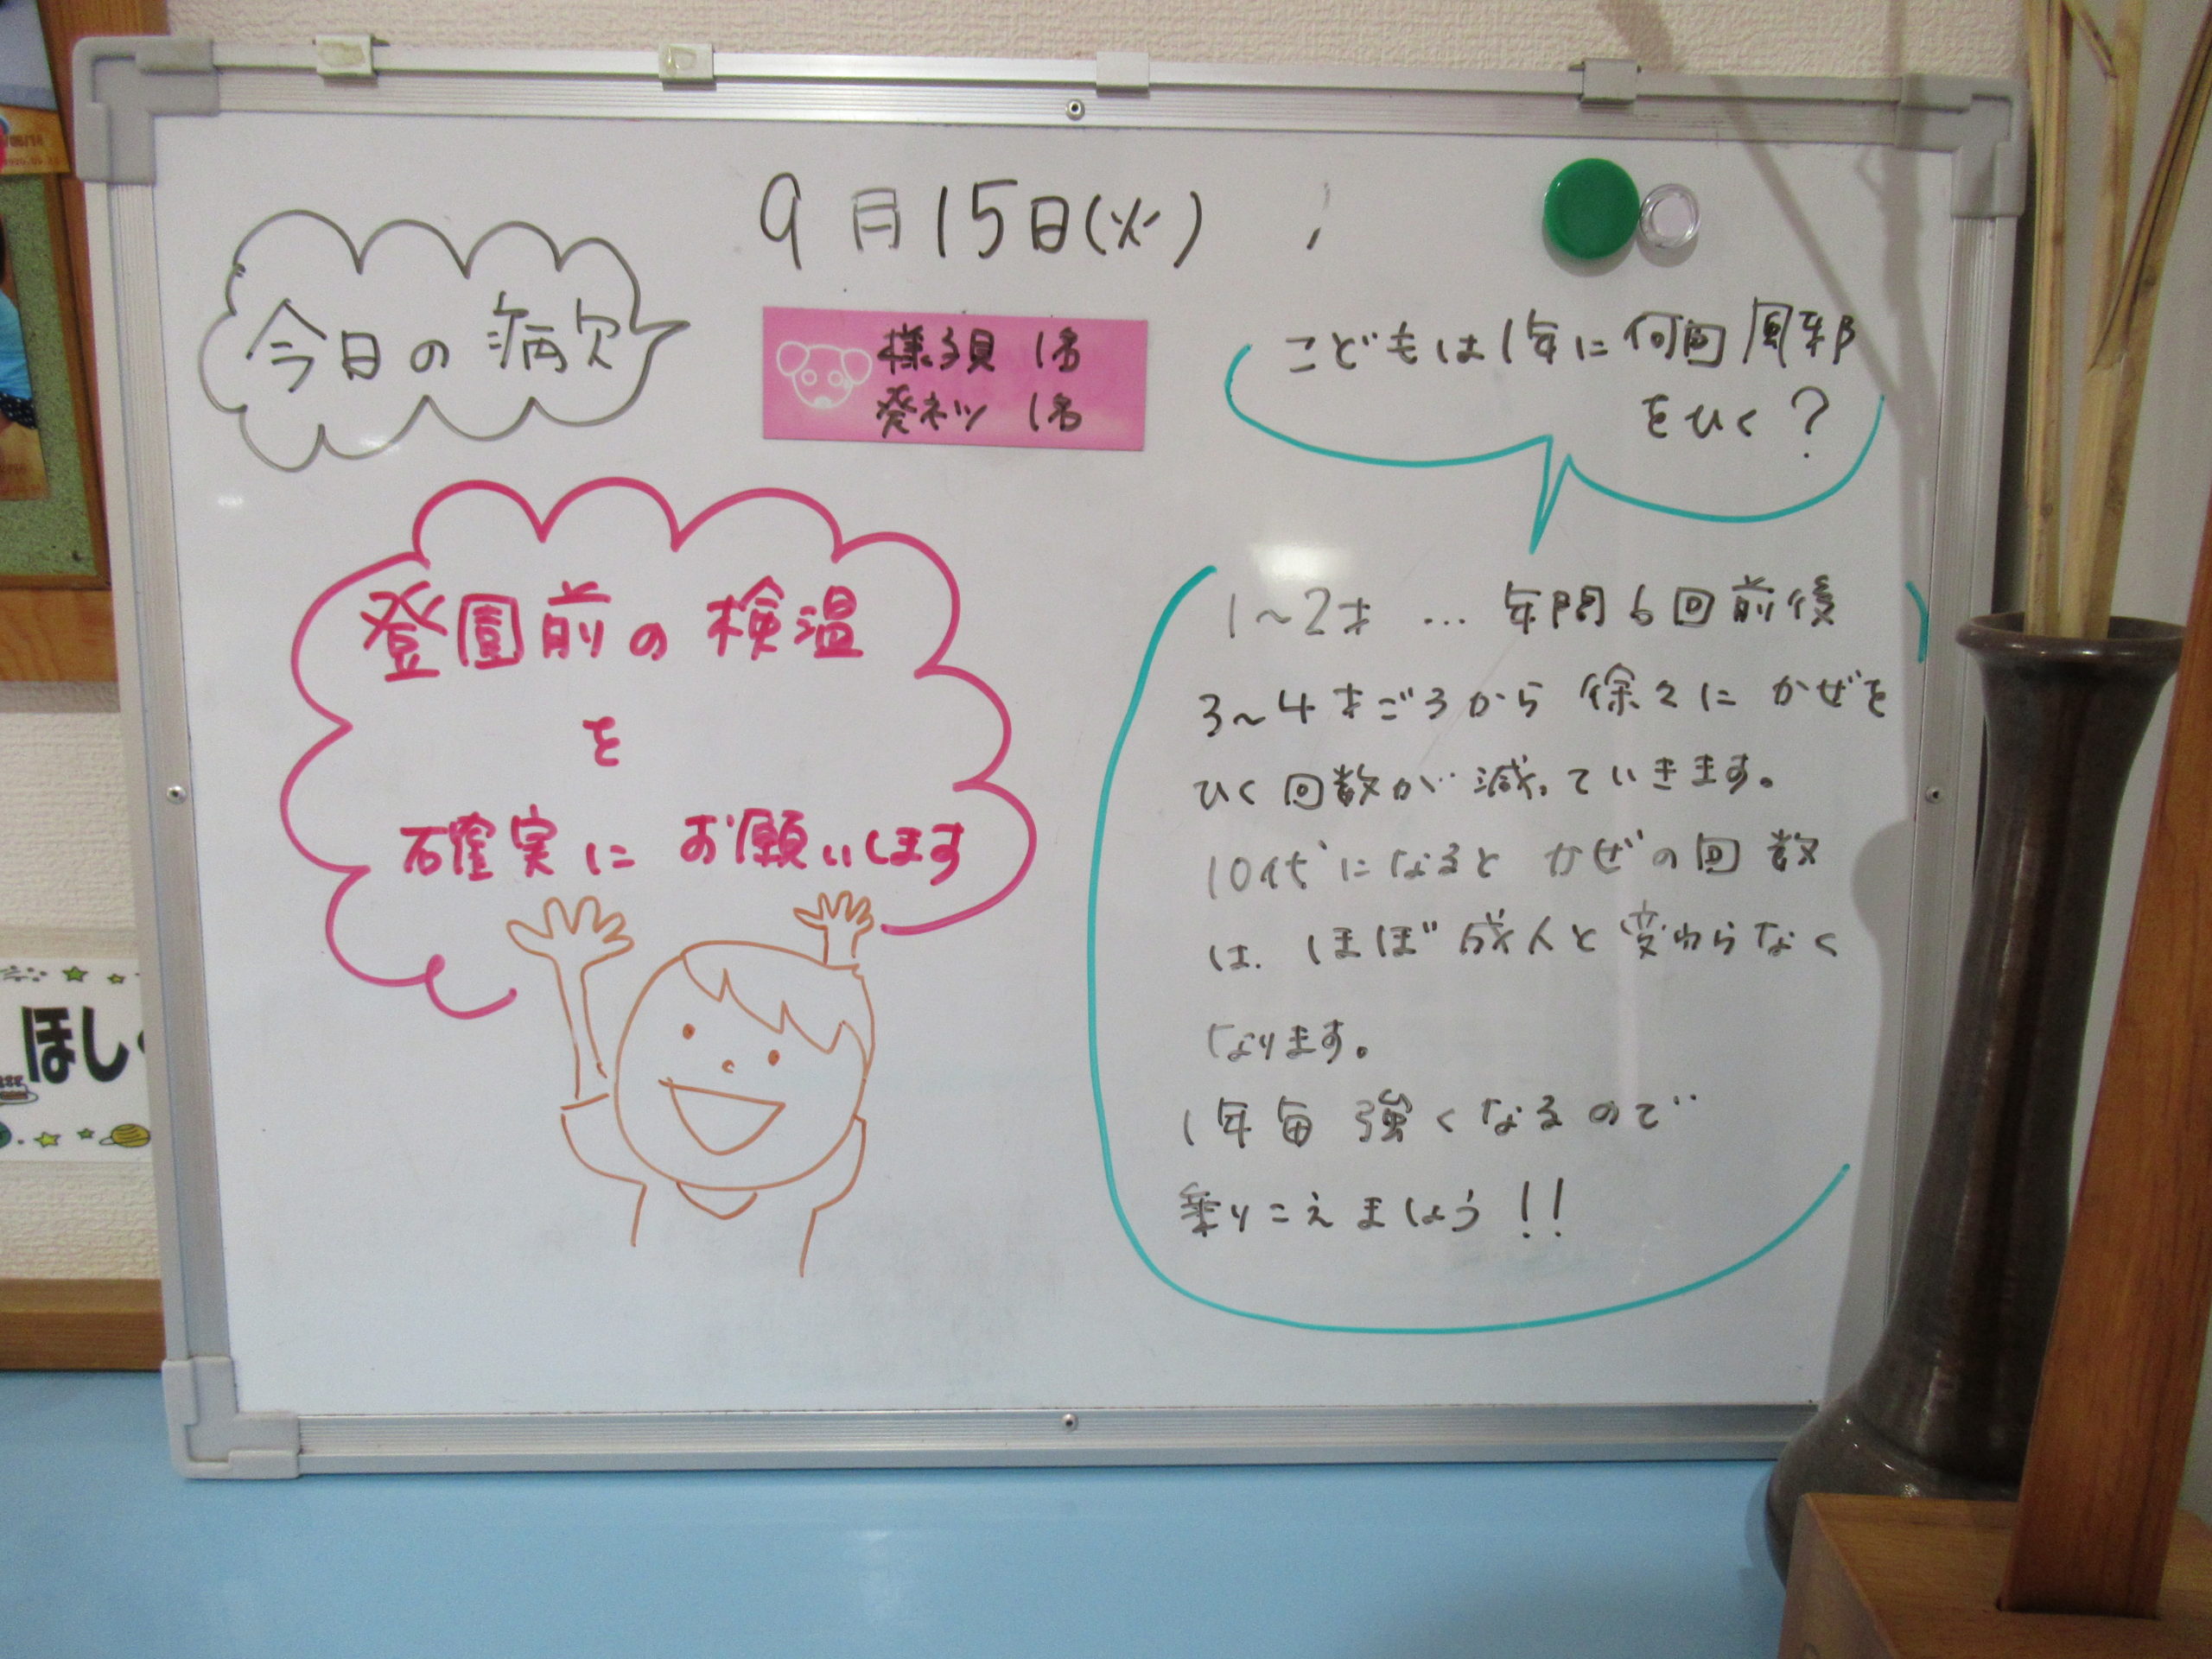 9月15日(火)
今日の病欠
様子見 1名
発ネツ 1名
登園前の検温
を
確実にお願いします
こどもは1年に何回風邪
をひく?
1~2才…年間6回前後
3~4才ごろから徐々にかぜを
ひく回数が減っていきます。
10代になるとかぜの回数
は、ほぼ成人と変わらなく
なります。
1年毎強くなるので
乗りこえましょう!!
ほし